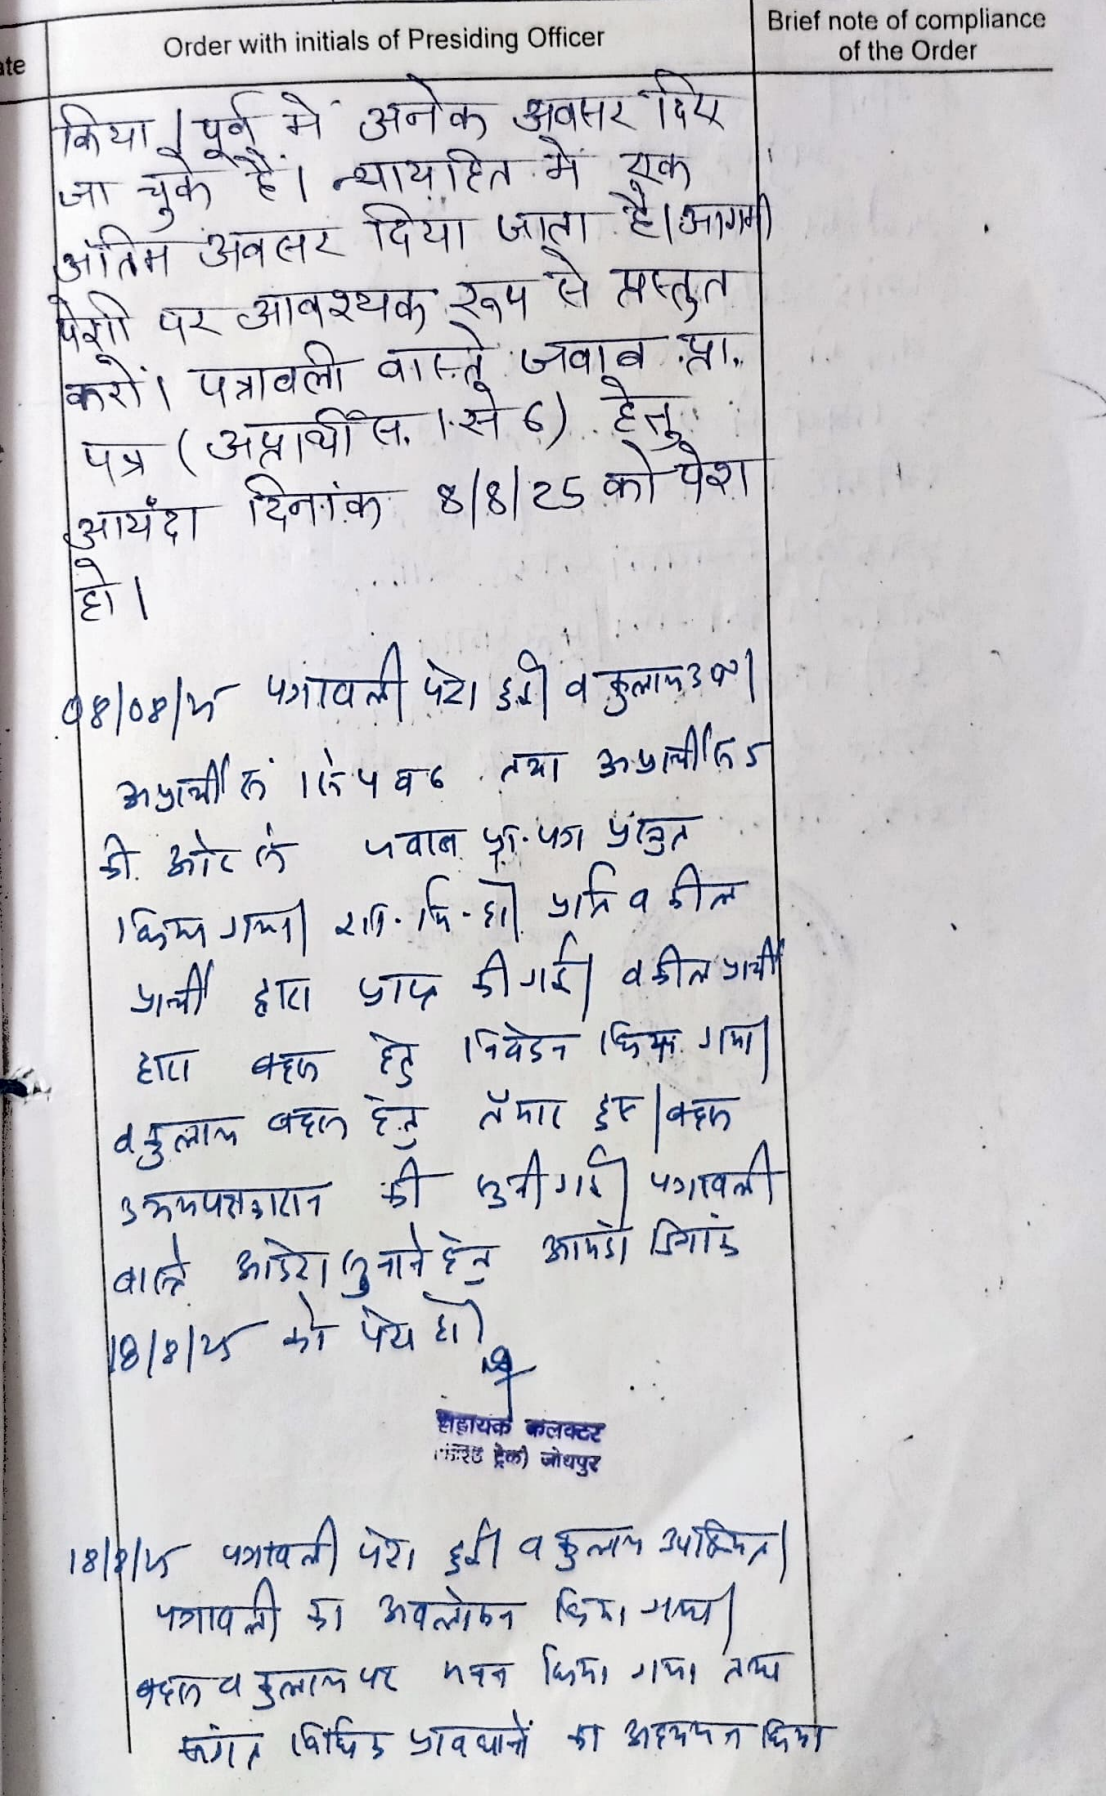 ate
Order with initials of Presiding Officer
Brief note of compliance
of the Order
किया। पूर्व में अनेक अवसर दिए
जा चुके हैं। न्यायहित में एक
अंतिम अवसर दिया जाता है। आगामी
पेशी पर आवश्यक रूप से प्रस्तुत
करो। पत्रावली वास्ते जवाब प्रा.
पत्र (अप्रार्थी सं. 1 से 6) हेतु
आयंदा दिनांक 8/8/25 को पेश
हो।
08/08/25 पत्रावली पेश हुई। वकुलाय उप।
अप्रार्थी सं 1 से 4 व 6 तथा अप्रार्थी सं 5
की ओर से जवाब प्रा. पत्र प्रस्तुत
किया गया। शा. मि. हो। प्रति वकील
प्रार्थी द्वारा प्राप्त की गई। वकील प्रार्थी
द्वारा बहस हेतु निवेदन किया गया।
वकुलाय बहस हेतु तैयार हुए। बहस
उभयपक्षकारान की सुनी गई। पत्रावली
वास्ते आदेश सुनाने हेतु आयंदा दिनांक
18/8/25 को पेश हो।
सहायक कलक्टर
(फास्ट ट्रेक) जोधपुर
18/8/25 पत्रावली पेश हुई। वकुलाय उपस्थित।
पत्रावली का अवलोकन किया गया।
बहस वकुलाय पर मनन किया गया तथा
संगत विधिक प्रावधानों का अध्ययन किया